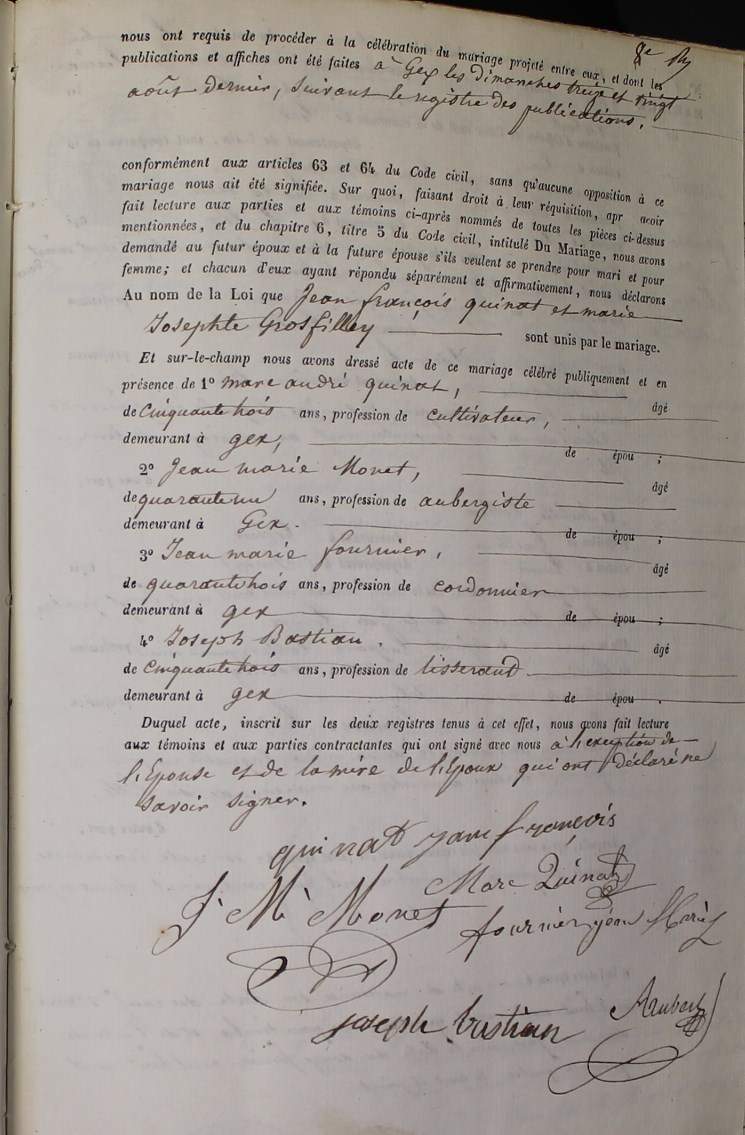 8e
nous ont requis de procéder à la célébration du mariage projeté entre eux, et dont les
publications et affiches ont été faites à Gex les dimanches treize et vingt
août dernier, suivant le registre des publications.
conformément aux articles 63 et 64 du Code civil, sans qu'aucune opposition à ce
mariage nous ait été signifiée. Sur quoi, faisant droit à leur réquisition, apr avoir
fait lecture aux parties et aux témoins ci-après nommés de toutes les pièces ci-dessus
mentionnées, et du chapitre 6, titre 5 du Code civil, intitulé Du Mariage, nous avons
demandé au futur époux et à la future épouse s'ils veulent se prendre pour mari et pour
femme; et chacun d'eux ayant répondu séparément et affirmativement, nous déclarons
Au nom de la Loi que Jean françois quinat et marie
Josephte Grosfilley sont unis par le mariage.
Et sur-le-champ nous avons dressé acte de ce mariage célébré publiquement et en
présence de 1o marc andré quinat, âgé
de Cinquante trois ans, profession de cultivateur,
demeurant à gex, de épou ;
2o Jean marie Monet, âgé
de quarante un ans, profession de aubergiste
demeurant à Gex. de épou ;
3o Jean marie fournier, âgé
de quarante trois ans, profession de cordonnier
demeurant à gex de épou ;
4o Joseph Bastian. âgé
de Cinquante trois ans, profession de tisserand
demeurant à gex de épou .
Duquel acte, inscrit sur les deux registres tenus à cet effet, nous avons fait lecture
aux témoins et aux parties contractantes qui ont signé avec nous à l'exception de
l'Epouse et de la mère de l'Epoux qui ont déclaré ne
savoir signer.
quinat jean françois
Marc Quinat
J. M. Monet
fournier jean Marie
joseph bastian